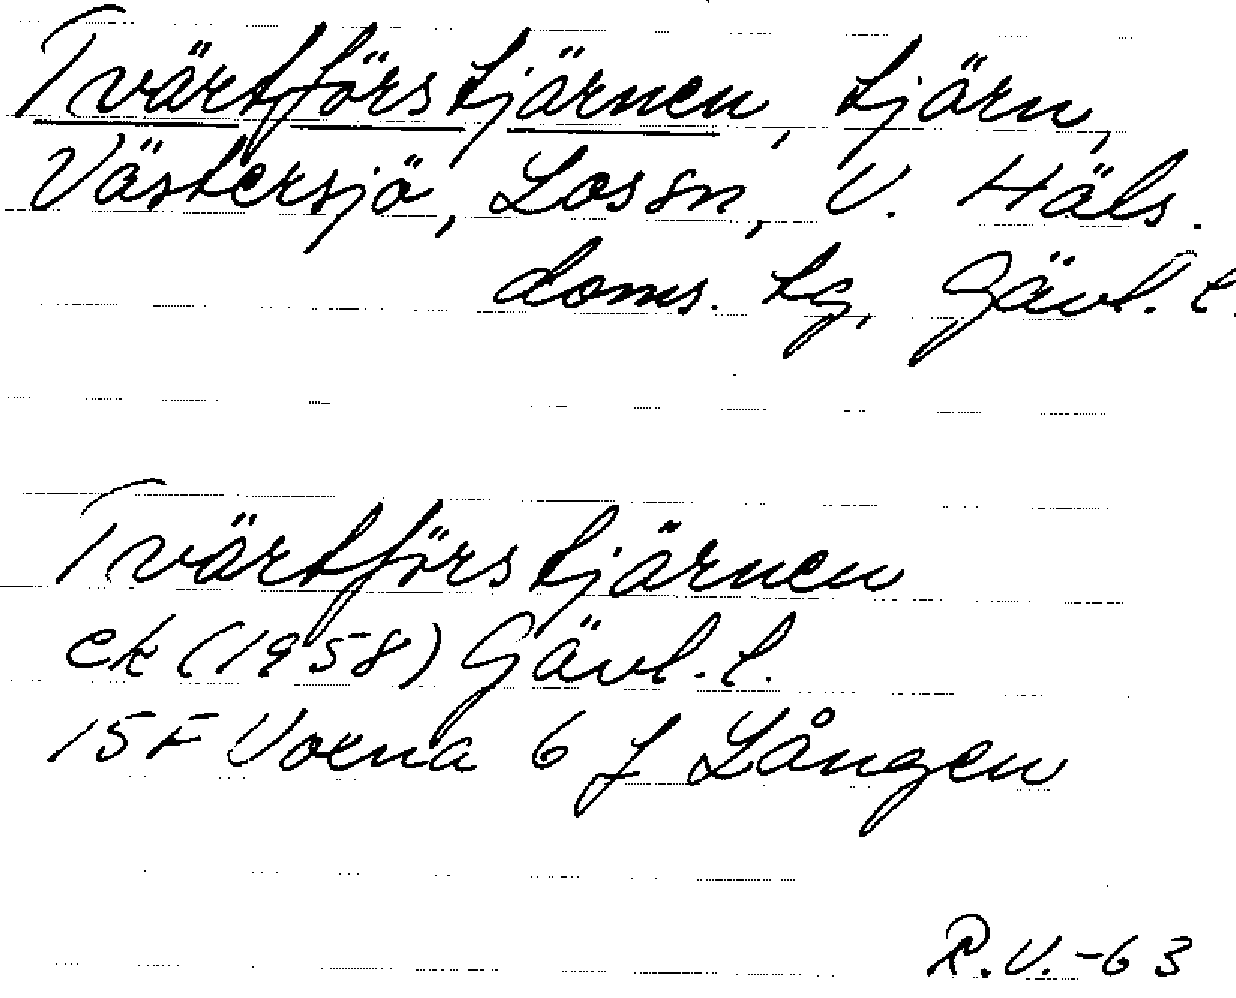 Tvärtförstjärnen, tjärn,
Västersjö, Los sn, V. Häls.
doms. tg, Gävl. l.
Tvärtförstjärnen
ek (1958) Gävl. l.
15F Voxna 6 f Lången
R.V.-63